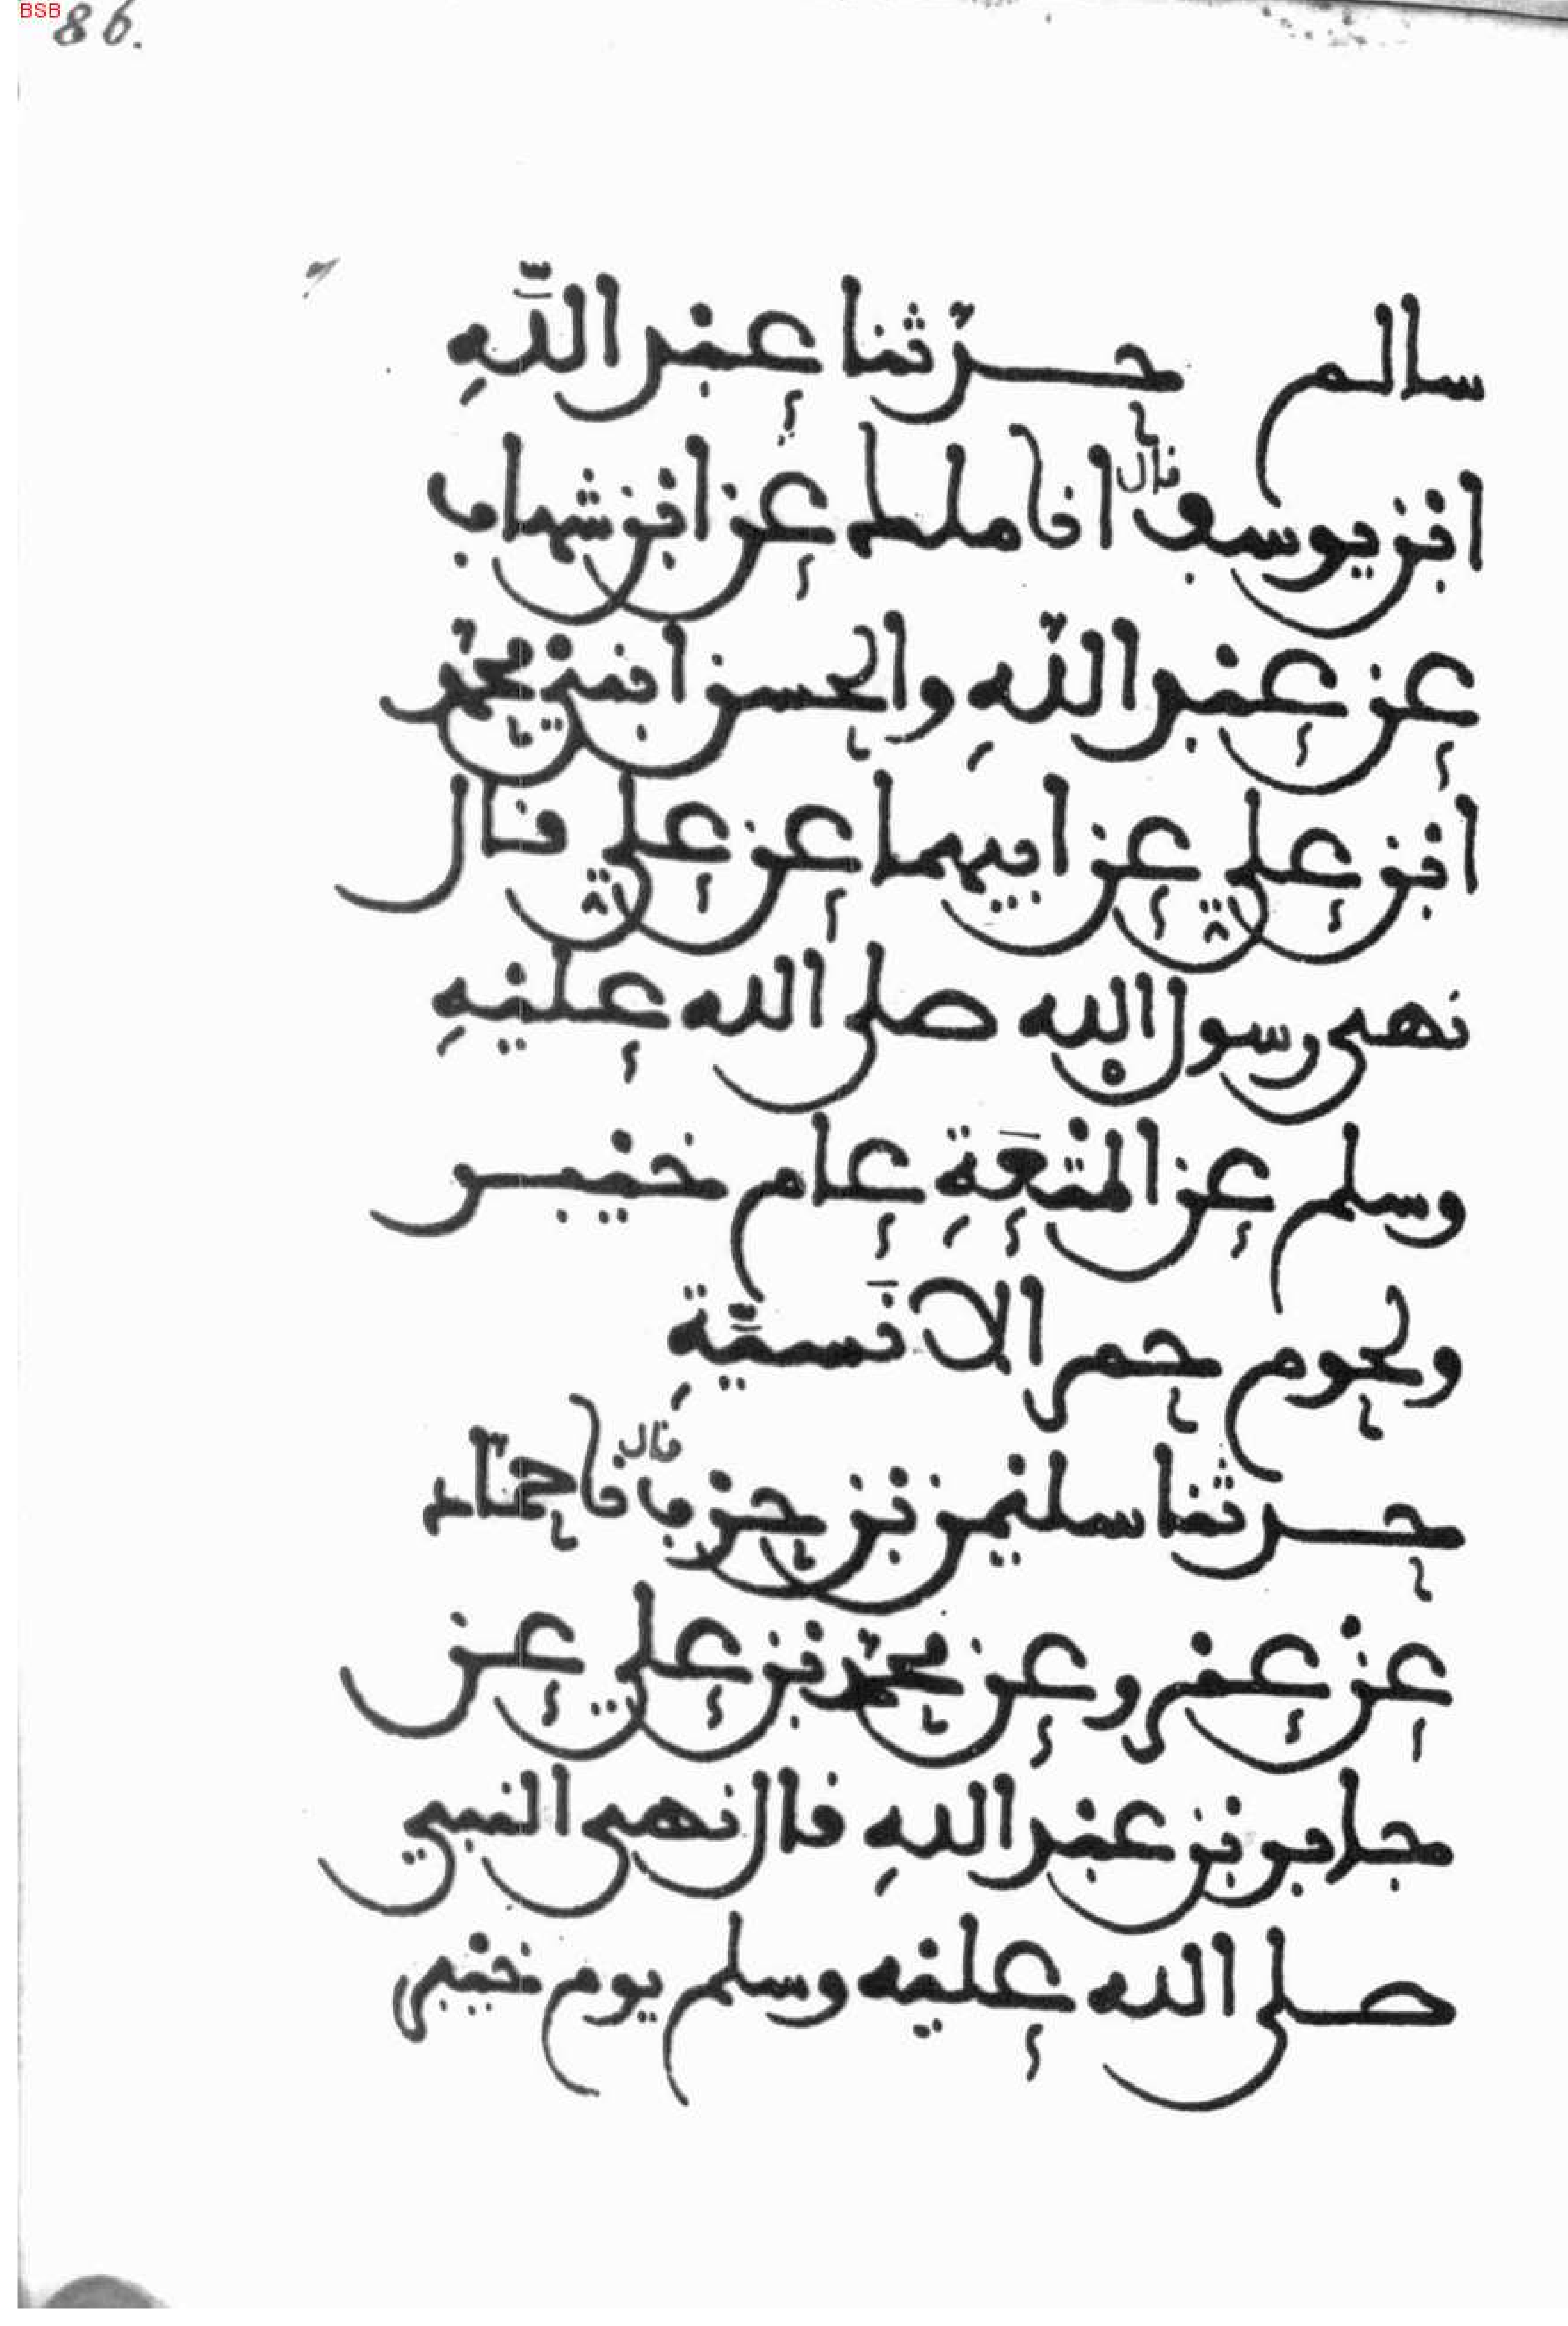 BSB
86.
سالم حدثنا عبد اللَّهِ
ابن يوسف قال انا ملك عن ابن شهاب
عن عبد اللّهِ والحسن ابني محمّد
ابن علي عن ابيهما عن علي قال
نهى رسول الله صلى الله عليهِ
وسلم عن المتعَةِ عام خيبر
ولحوم حمر الانَسيَّةِ
حدثنا سليمن بن حرب قال نا حمّاد
عن عمرو عن محمّد بن علي عن
جابر بن عبد اللهِ قال نهى النبي
صلى الله عليه وسلم يوم خيبر